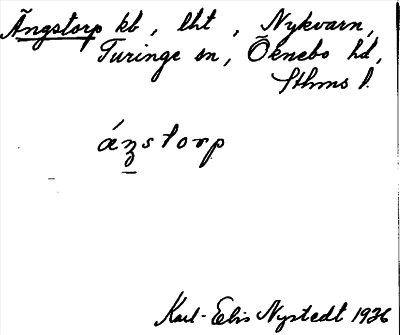 Ängstorp kb, lht, Nykvarn,
Turinge sn, Öknebo hd,
Sthms l.
áꜧstorp
Karl-Elis Nystedt 1936